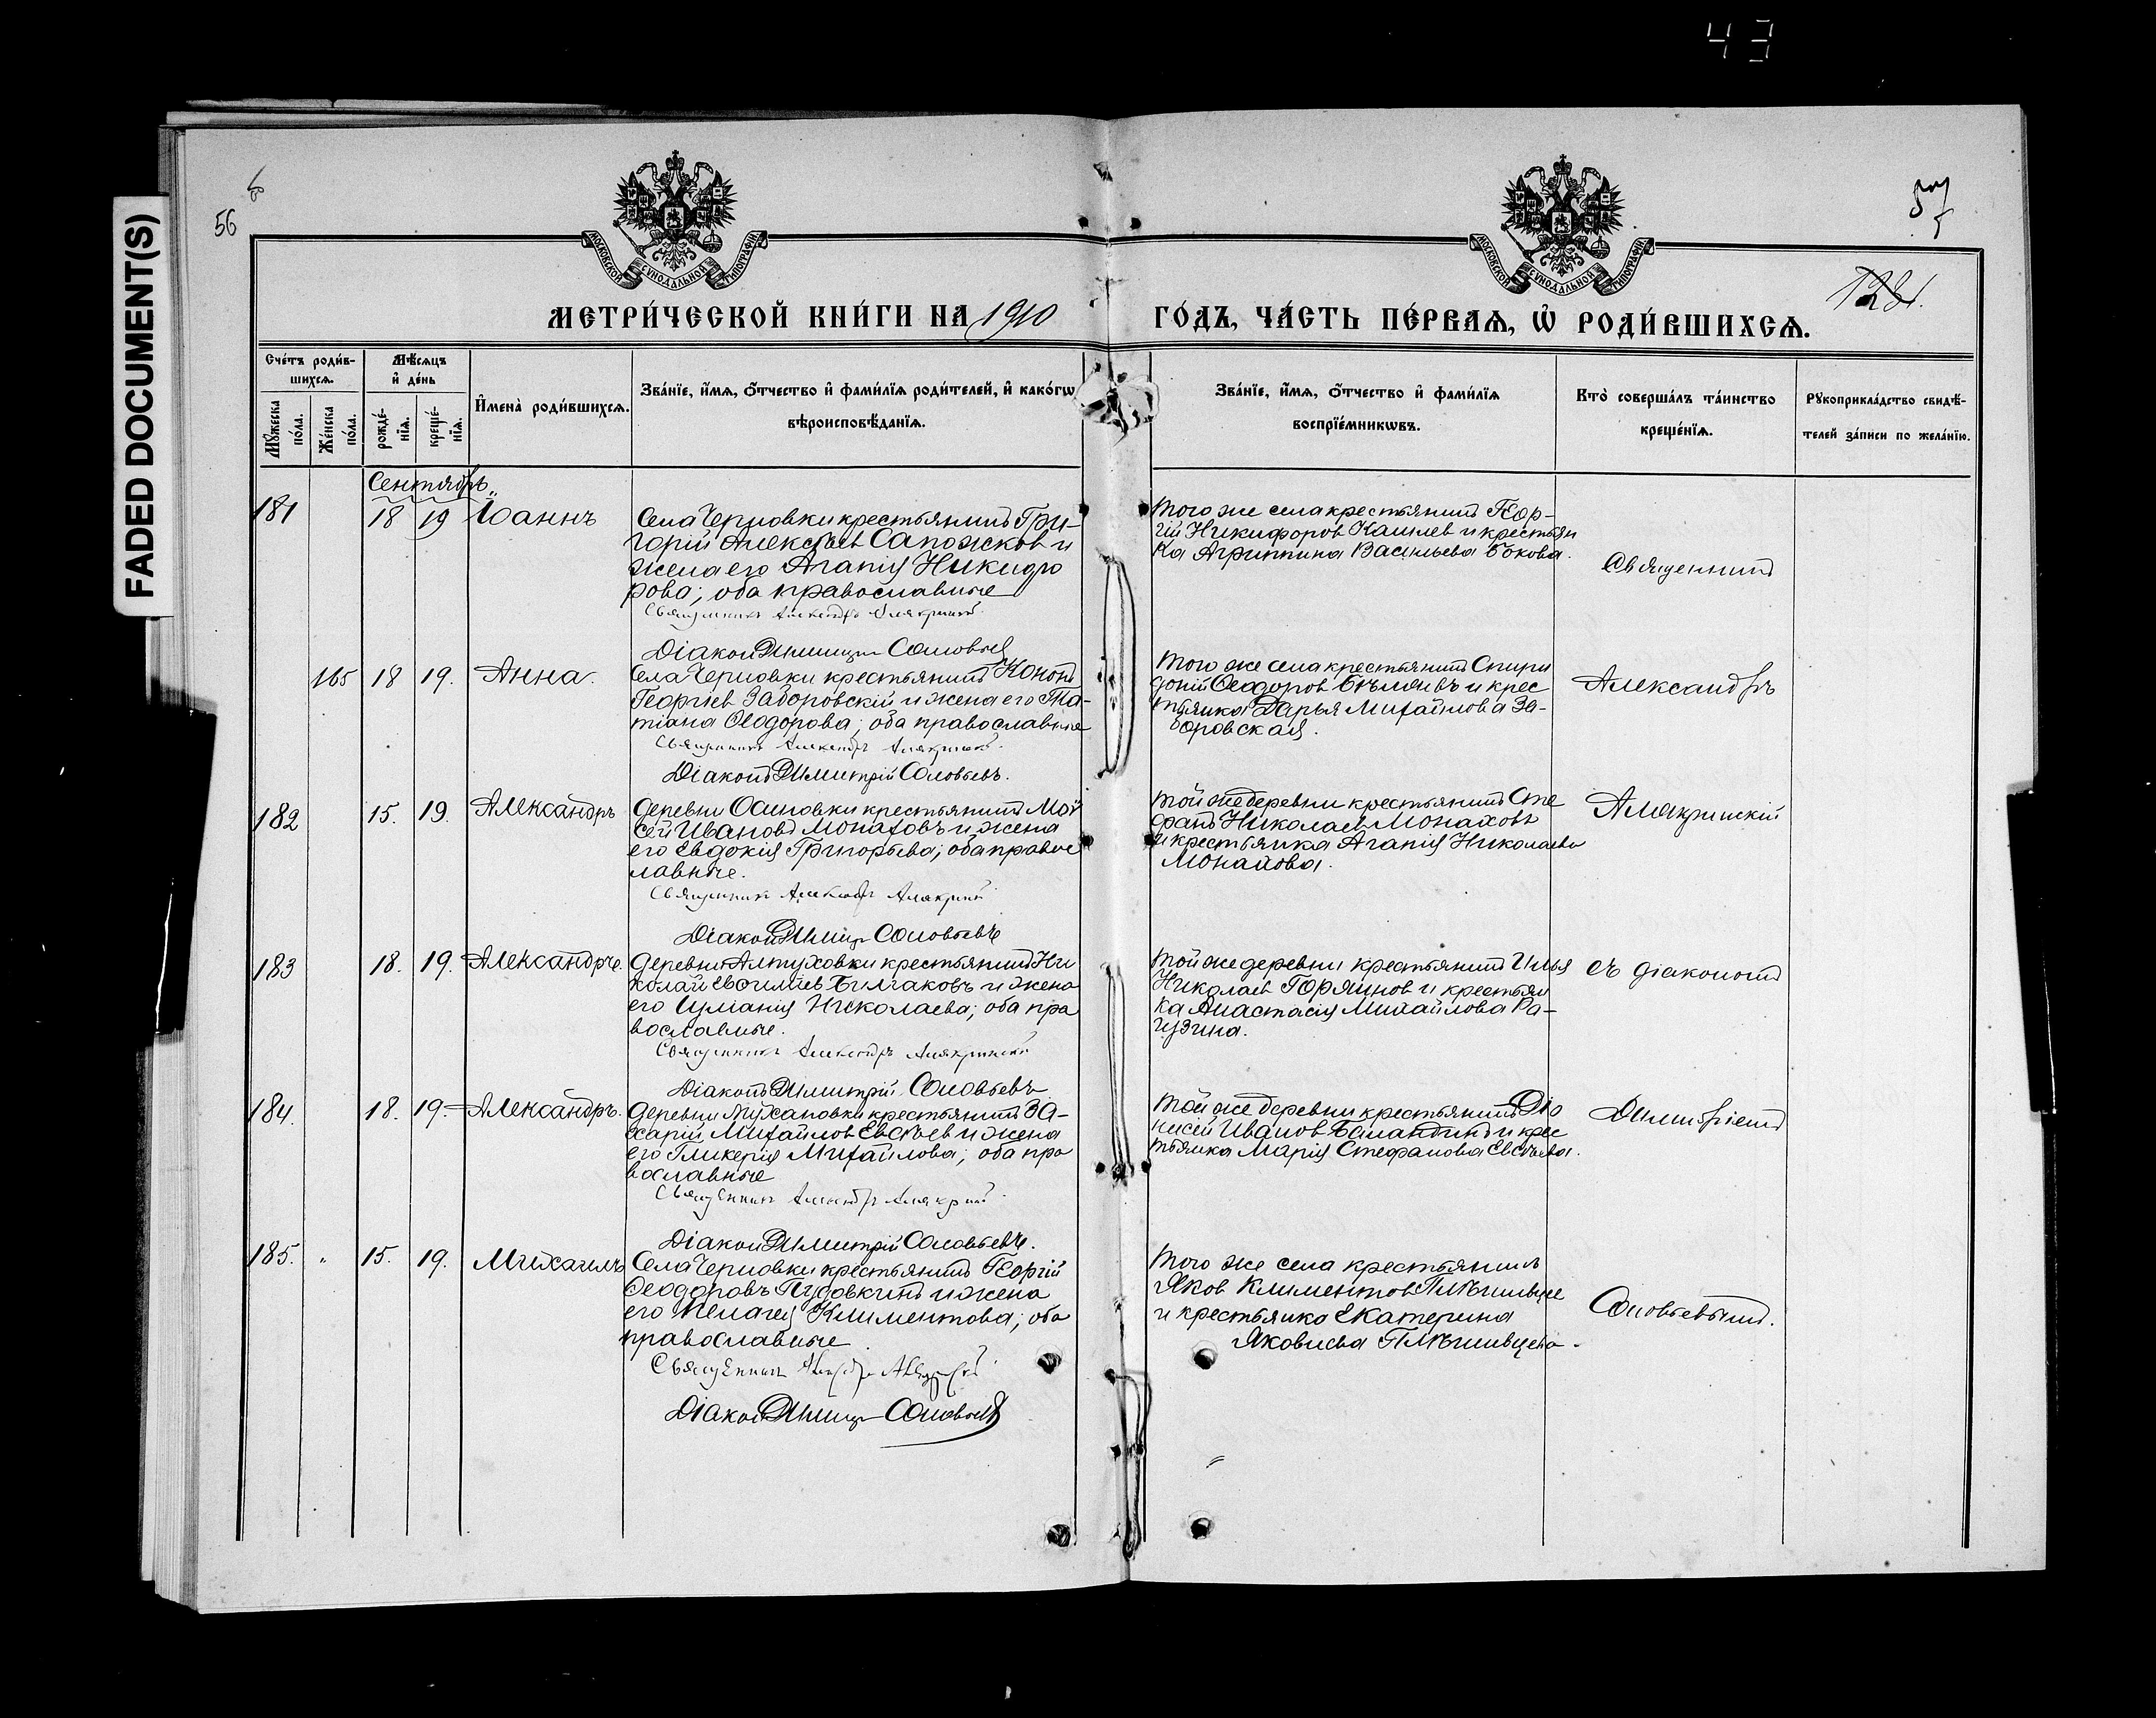 43
FADED DOCUMENT(S)
56
57
МОСКОВСКОЙ СѴНОДАЛЬНОЙ ТИПОГРАФІИ
МОСКОВСКОЙ СѴНОДАЛЬНОЙ ТИПОГРАФІИ
МЕТРИ́ЧЕСКОЙ КНИ́ГИ НА 1910
ГО́ДЪ, ЧА́СТЬ ПЕ́РВАЯ, Ѡ҆ РОДИ́ВШИХСЯ.
Сче́тъ роди́в-
шихсѧ.
Мѣ́сѧцъ
и҆ де́нь
Мꙋ́жеска
по́ла.
Же́нска
по́ла.
рожде́-
нїѧ.
креще́-
нїѧ.
И҆мена̀ роди́вшихсѧ.
Зва́нїе, и҆́мѧ, ѻ҆́тчество и҆ фами́лїѧ роди́телей, и҆ како́гѡ
вѣроисповѣ́данїѧ.
Зва́нїе, и҆́мѧ, ѻ҆́тчество и҆ фами́лїѧ
воспрїе́мникѡвъ.
Кто̀ соверша́лъ та́инство
креще́нїѧ.
Рꙋкоприкла́дство свидѣ́-
телей за́писи по жела́нїю.
Сентябрь
181
18
19
Іоаннъ
Села Черновки крестьянинъ Гри-
горій Алексѣев Сапожков и
жена его Агапія Никифо
рова; оба православные
Священникъ Александръ Алякринскій
Діаконъ Димитрій Соловьевъ
Того же села крестьянинъ Геор-
гій Никифоров и крестьян
ка Агриппина Васильева Бокова.
Священникъ
165
18
19.
Анна.
Села Черновки крестьянинъ Конон
Георгіев Заборовскій и жена его Та-
тіана Ѳеодорова; оба православные
Священникъ Александръ Алякринскій
Діаконъ Димитрій Соловьевъ.
Того же села крестьянинъ Спири
доній Ѳеодоров Бѣляевъ и крес
тьянка Дарья Михайлова За-
боровская.
Александръ
182
15.
19.
Александръ
Деревни Осиновки крестьянинъ Мои
сей Иванов Монаховъ и жена
его Евдокія Григорьева; оба правос
лавные.
Священникъ Александръ Алякринскій
Діаконъ Димитрій Соловьевъ
Той же деревни крестьянинъ Сте
фанъ Николаев Монаховъ
и крестьянка Агапія Николаева
Монахова.
Алякринскій
183
18.
19.
Александръ.
Деревни Алтуховки крестьянинъ Ни
колай и жена
его Иуліанія Николаева; оба пра
вославные.
Священникъ Александръ Алякринскій
Діаконъ Димитрій Соловьевъ
Той же деревни крестьянинъ Илья
Николаев Горяинов и крестьян
ка Анастасія Михайлова Ра-
гузина.
съ діакономъ
184.
18.
19.
Александръ.
Деревни Мухановки крестьянинъ За-
харій Михайлов Евсѣев и жена
его Гликерія Михайлова; оба пра
вославные
Священникъ Александръ Алякринскій
Діаконъ Димитрій Соловьевъ.
Той же деревни крестьянинъ Діо
нисій Иванов Баландинъ и крес
тьянка Марія Стефанова Евсѣева.
Димитріемъ
185.
"
15.
19.
Михаилъ
Села Черновки крестьянинъ Георгій
Ѳеодоровъ Пудовкинъ и жена
его Пелагея Климентова; оба
православные
Священникъ Александръ Алякринскій
Діаконъ Димитрій Соловьевъ
Того же села крестьянинъ
Яков Климентов Плѣшивцев
и крестьянка Екатерина
Яковлева Плѣшивцева.
Соловьевымъ.